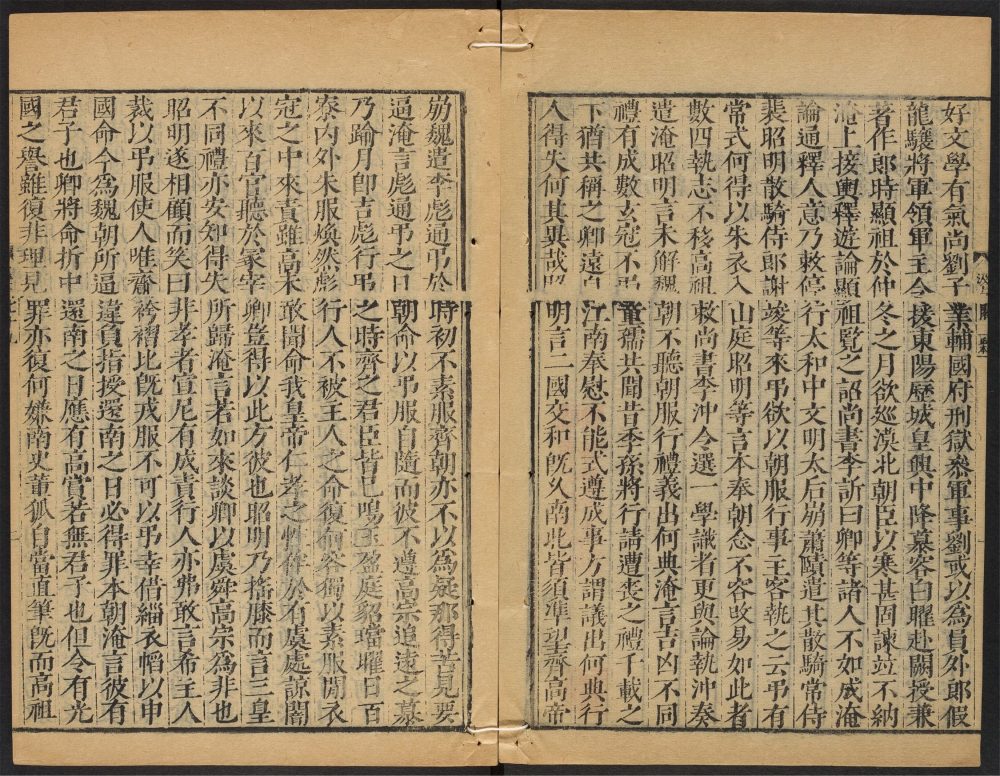 好文學有氣尚劉子業輔國府刑獄參軍事劉或以為員外郎假
龍驤將軍領軍主令援東陽歷城皇興中降慕容白曜赴闕授兼
著作郎時顯祖於仲冬之月欲巡漠北朝臣以寒甚固諫並不納
淹上接輿釋遊論顯祖覽之詔尚書李訢曰卿等諸人不如成淹
論通釋人意乃敕停行太和中文明太后崩蕭賾遣其散騎常侍
裴昭明散騎侍郎謝竣等來弔欲以朝服行事主客執之云弔有
常式何得以朱衣入山庭昭明等言本奉朝念不容改易如此者
數四執志不移高祖敕尚書李沖令選一學識者更與論執沖奏
遣淹昭明言未解魏朝不聽朝服行禮義出何典淹言吉凶不同
禮有成數玄冠不弔童孺共聞昔季孫將行請遭喪之禮千載之
下猶共稱之卿遠自江南奉慰不能式遵成事方謂議出何典行
人得失何其異哉昭明言二國交和既久南北皆須準望齊高帝
崩魏遣李彪通弔於時初不素服齊朝亦不以為疑那得苦見要
逼淹言彪通弔之日朝命以弔服自隨而彼不遵高宗追遠之慕
乃踰月即吉彪行弔之時齊之君臣皆已鳴玉盈庭貂璫曜日百
寮內外朱服煥然彪行人不被主人之命復何容獨以素服間衣
冠之中來責雖高未敢聞命我皇帝仁孝之性侔於有虞處諒闇
以來百官聽於冢宰卿豈得以此方彼也昭明乃搖膝而言三皇
不同禮亦安知得失所歸淹言若如來談卿以虞舜高宗為非也
昭明遂相顧而笑曰非孝者宣尼有成責行人亦弗敢言希主人
裁以弔服使人唯齎袴褶比既戎服不可以弔幸借緇衣㡊以申
國命今為魏朝所逼違負指授還南之日必得罪本朝淹言彼有
君子也卿將命折中還南之日應有高賞若無君子也但令有光
國之譽雖復非理見罪亦復何嫌南史董狐自當直筆既而高祖